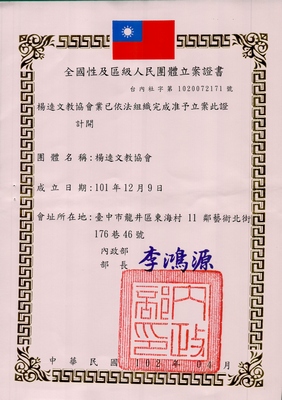 全國性及區級人民團體立案證書
台內社字第1020072171號
楊逵文教協會業已依法組織完成准予立案此證
計開
團體名稱:楊逵文教協會
成立日期:101年12月9日
會址所在地:臺中市龍井區東海村11鄰藝術北街
176巷46號
內政部
部長 李鴻源
內政部印
中華民國102年0 月